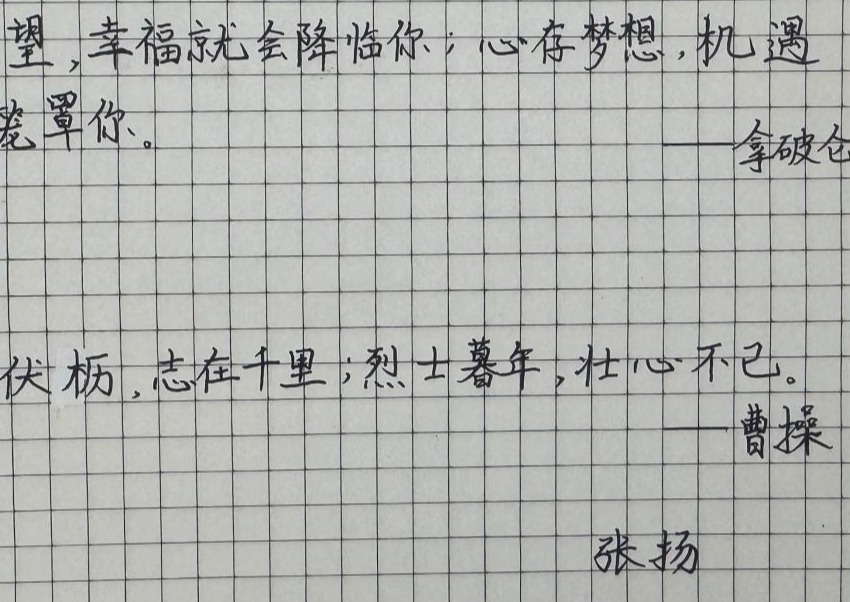 望,幸福就会降临你;心存梦想,机遇
笼罩你。
——拿破仑
伏枥,志在千里;烈士暮年,壮心不已。
——曹操
张扬